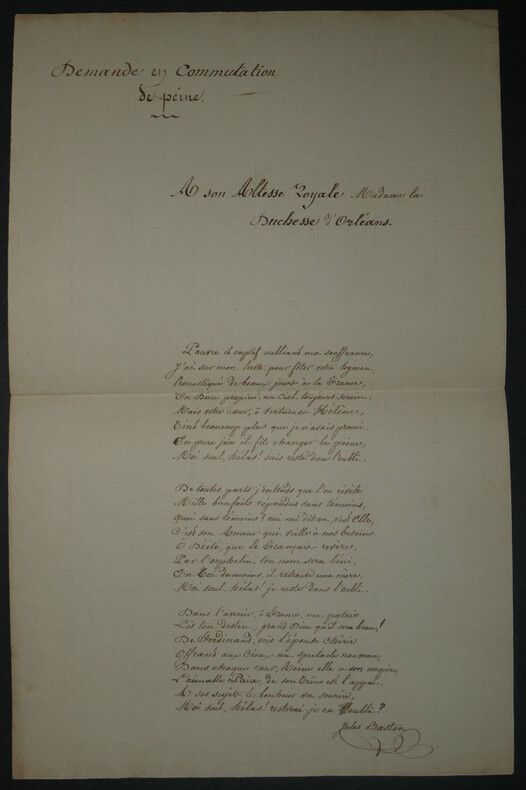 Demande en Commutation
de peine.
A son Altesse Royale Madame la
Duchesse d'Orléans.
Pauvre et captif, oubliant ma souffrance,
J'ai sur mon luth, pour fêter votre hymen,
Pronostiqué de beaux jours à la France,
Un Dieu propice, un Ciel toujours serein;
Mais votre cœur, ô vertueuse Hélène,
Tint beaucoup plus que je n'avais promis
En pure joie il fit changer les peines,
Moi seul, hélas! suis resté dans l'oubli.
De toutes parts j'entends que l'on révèle
Mille bienfaits répandus sans témoins,
Quoi sans témoins? me dit on, c'est Elle,
C'est son Amour qui veille à nos besoins
Ô Déité, que le revère,
Par l'orphelin, ton nom sera béni,
En Toi du moins, il retrouve une mère,
Moi seul, hélas! je reste dans l'oubli.
Dans l'avenir, ô France, ma patrie
Lis ton destin, grand Dieu qu'il sera beau!
De Ferdinand, vois l'épouse chérie
Offrant aux Cieux un spectacle nouveau,
Dans chaque cœur, Reine elle a son empire,
L'aimable Paix, de son Trône est l'appui,
A ses sujets le bonheur va sourire,
Moi seul, hélas! resterai-je en oubli?
Jules Baston